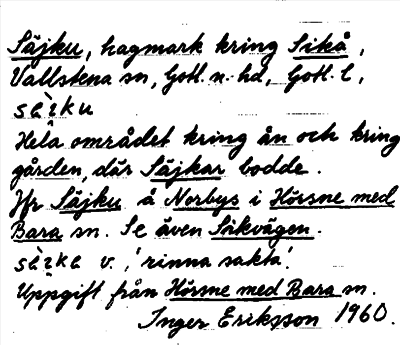 Säjku, hagmark kring Sikå,
Vallstena sn, Gotl. n. hd, Gotl. l,
sèi̯ku
Hela området kring ån och kring
gården, där Säjkar bodde.
Jfr Säjku å Norbys i Hörsne med
Bara sn. Se även Sikvägen.
sèi̯ka v. 'rinna sakta'.
Uppgift från Hörsne med Bara sn.
Inger Eriksson 1960.